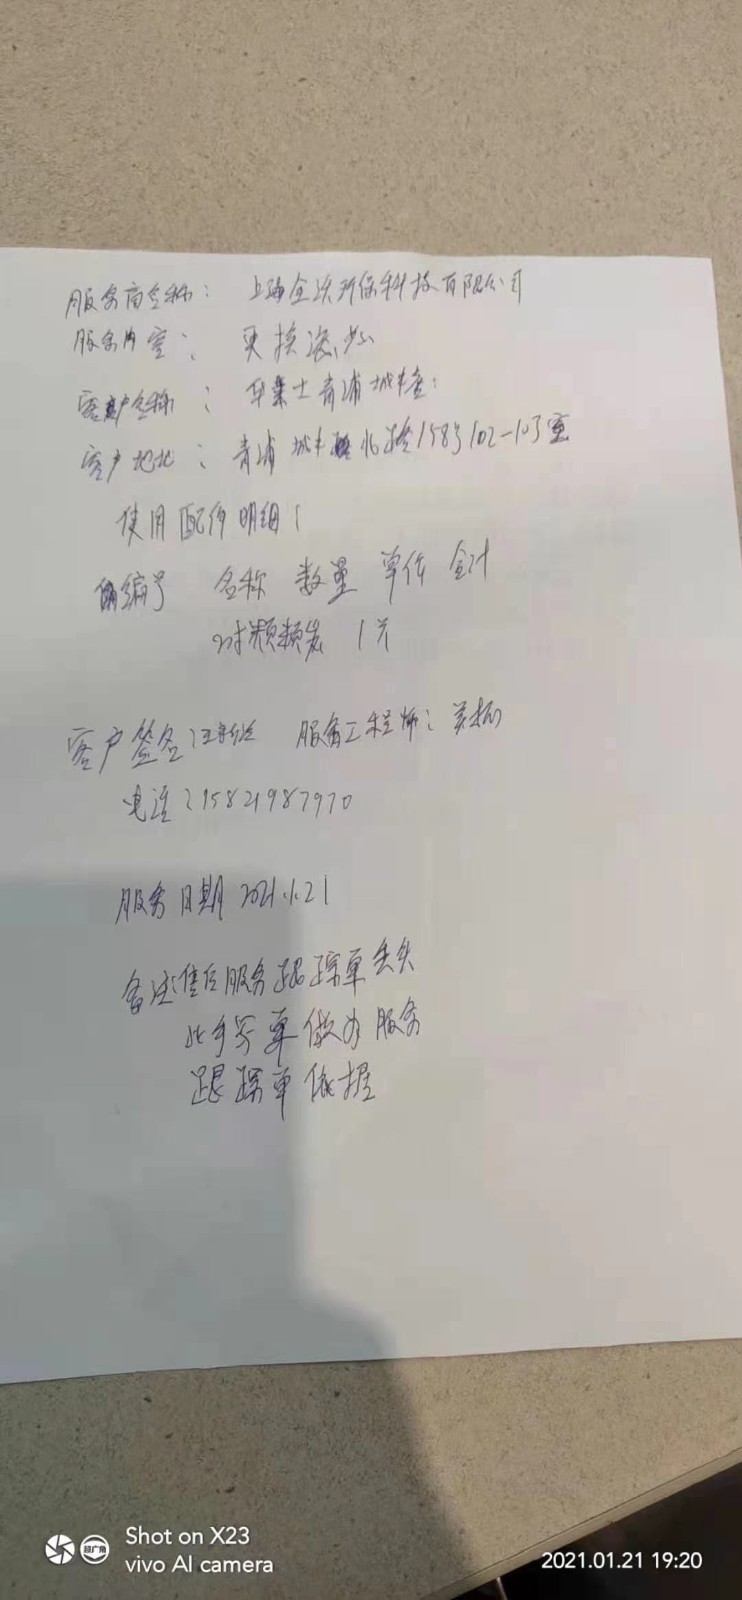 服务商名称： 上海全沃环保科技有限公司
服务内容： 更换滤芯
客户名称： 华莱士青浦城中店：
客户地址： 青浦城中北路158号102-103室
使用配件明细：
编号 名称 数量 单价 合计
1片
客户签名： 服务工程师：
电话：15821987970
服务日期 2021.1.21
备注：售后服务跟踪单丢失
此手写单做为服务
跟踪单依据
Shot on X23
超广角
vivo AI camera
2021.01.21 19:20